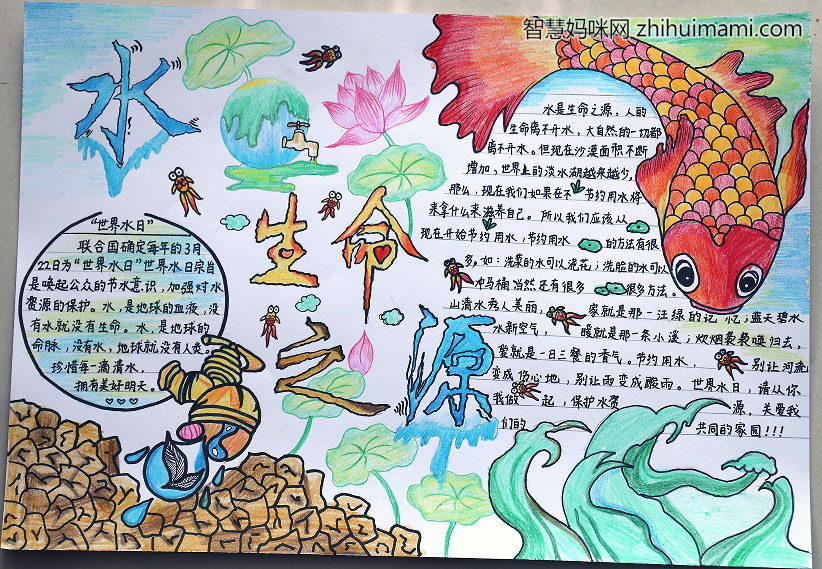 智慧妈咪网 zhihuimami.com
水
生命
之源
“世界水日”
联合国确定每年的3月
22日为“世界水日”世界水日宗旨
是唤起公众的节水意识，加强对水
资源的保护。水，是地球的血液，没
有水就没有生命。水，是地球的
命脉，没有水，地球就没有人类。
珍惜每一滴清水，
拥有美好明天。
水是生命之源，人的
生命离不开水，大自然的一切都
离不开水。但现在沙漠面积不断
增加，世界上的淡水湖越来越少，
那么，现在我们如果在不节约用水将
来拿什么来滋养自己。所以我们应该从
现在开始节约用水，节约用水的方法有很
多，如：洗菜的水可以浇花；洗脸的水可以
冲马桶当然还有很多很多方法。
山清水秀人美丽，家就是那一汪绿的记忆；蓝天碧水
水新空气，暖就是那一条小溪；炊烟袅袅唤归去，
爱就是一日三餐的香气。节约用水，别让河流
变成伤心地，别让雨变成酸雨。世界水日，请从你
我做一起，保护水资源，关爱我
们的共同的家园！！！